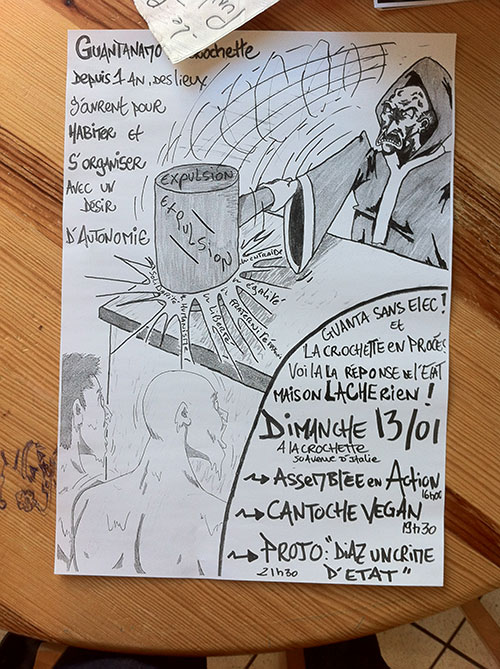 GUANTANAMO
DEPUIS 1 AN, DES LIEUX
S'OUVRENT POUR
HABITER ET
S'ORGANISER
AVEC UN
DÉSIR
D'AUTONOMIE
EXPULSION
EXPULSION
SOLIDARITÉ
HUMANISME
LIBERTÉ
FRATERNITÉ
égalité
ENTRAIDE
GUANTA SANS ELEC!
et
LA CROCHETTE EN PROCÈS
VOILA LA RÉPONSE DE L'ÉTAT
MAIS ON LACHE RIEN!
DIMANCHE 13/01
A LA CROCHETTE
50 AVENUE D'ITALIE
→ ASSEMBLÉE EN ACTION
16h00
→ CANTOCHE VEGAN
19h30
→ PROJO: "DIAZ UN CRIME
21h30 D'ETAT"